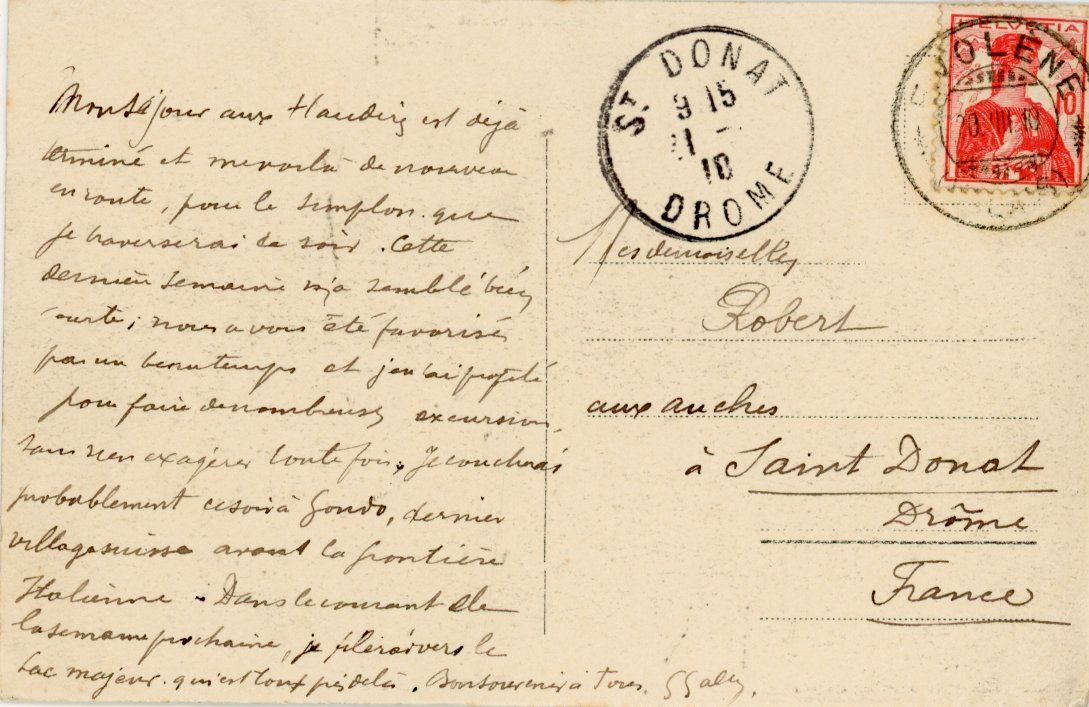 Mon séjour aux Haudères est déjà
terminé et me voilà de nouveau
en route, pour le Simplon que
je traverserai ce soir. Cette
dernière semaine m'a semblé bien
courte; nous avons été favorisés
par un beau temps et j'en ai profité
pour faire de nombreuses excursions,
sans rien exagérer toutefois. Je coucherai
probablement ce soir à Gondo, dernier
village suisse avant la frontière
Italienne. Dans le courant de
la semaine prochaine, je filerai vers le
Lac majeur qui est tout près delà. Bon souvenir à tous.
ST DONAT
9 15
10
DROME
HELVETIA
10
EVOLENE
Mesdemoiselles
Robert
aux auches
à Saint Donat
Drôme
France